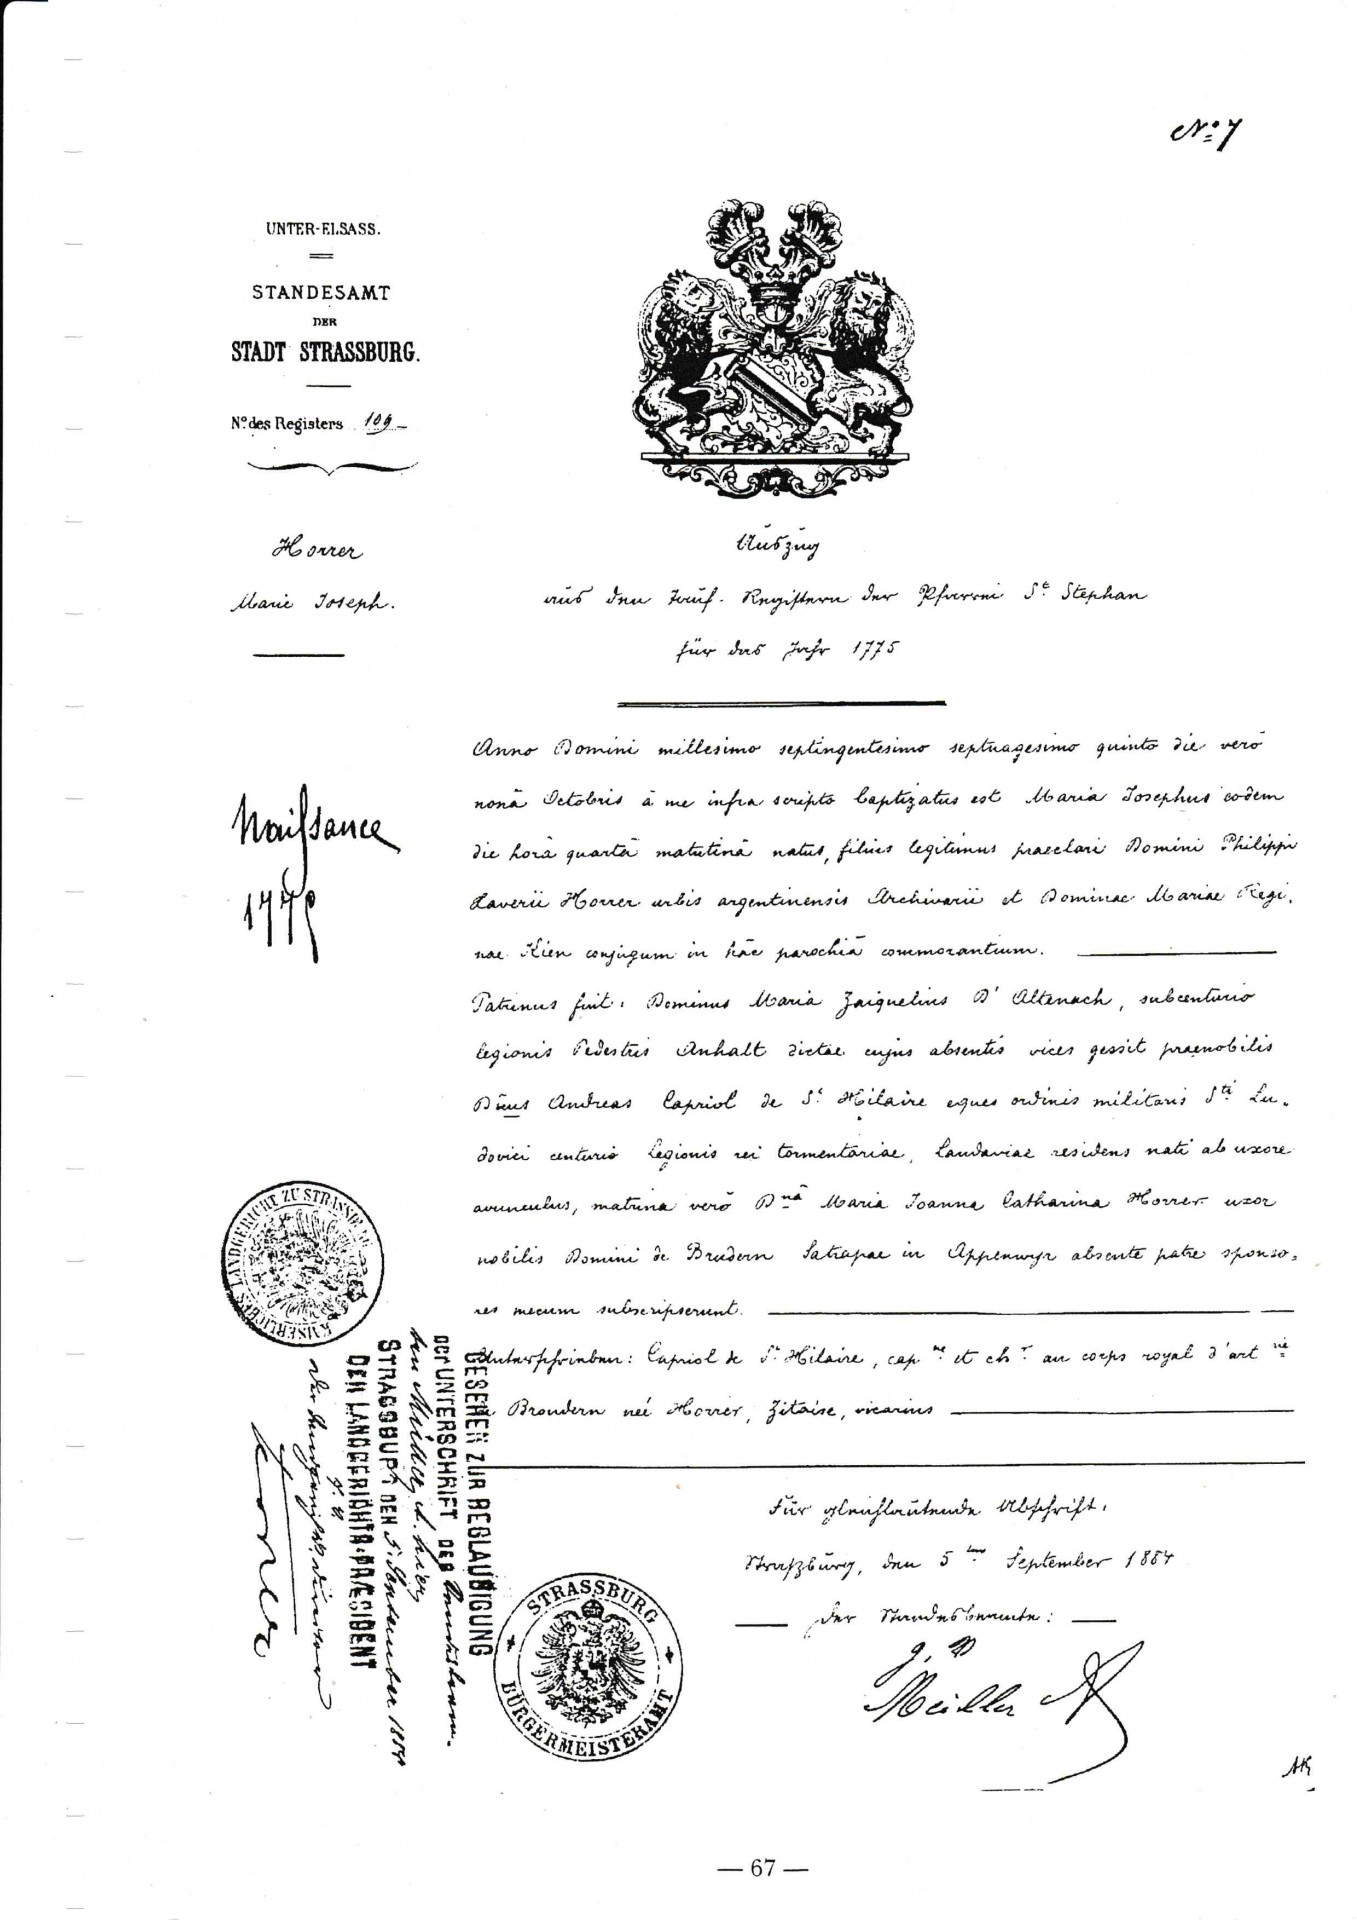 No: 7
UNTER-ELSASS.
STANDESAMT
DER
STADT STRASSBURG.
No. des Registers 109
Horrer
Marie Joseph.
Auszug
aus den Tauf-Registern der Pfarrei St. Stephan
für das Jahr 1775
Naissance
1775
Anno Domini millesimo septingentesimo septuagesimo quinto die verò
nonâ Octobris à me infra scripto baptizatus est Maria Josephus eodem
die horâ quartâ matutinâ natus, filius legitimus praeclari Domini Philippi
Xaverii Horrer urbis argentinensis Archivarii et Dominae Mariae Regi-
nae Kien conjugum in hâc parochiâ commorantium.
Patrinus fuit: Dominus Maria Zaiquelius D'Altenach, subcenturio
legionis Pedestris Anhalt dictae cujus absentis vices gessit praenobilis
Dnus Andreas Capriol de St Hilaire eques ordinis militaris Sti Lu-
dovici centurio legionis rei tormentariae, Landaviae residens nati ab uxore
avunculus, matrina verò Dna Maria Joanna Catharina Horrer uxor
nobilis Domini de Brudern Satrapae in Appenwyr absente patre sponso-
res mecum subscripserunt.
Unterschrieben: Capriol de St Hilaire, capne et chr au corps royal d'artrie
Broudern neé Horrer, Zitaise, vicarius
Für gleichlautende Abschrift.
Straßburg, den 5ten September 1884
Der Standesbeamte:
J. V.
Müller
KAISERLICHES LANDGERICHT ZU STRASSBURG
GESEHEN ZUR BEGLAUBIGUNG
DER UNTERSCHRIFT DES
Müller
STRASSBURG DEN 5. September 1884
DER LANDGERICHTS-PRÆSIDENT
STRASSBURG
BÜRGERMEISTERAMT
— 67 —